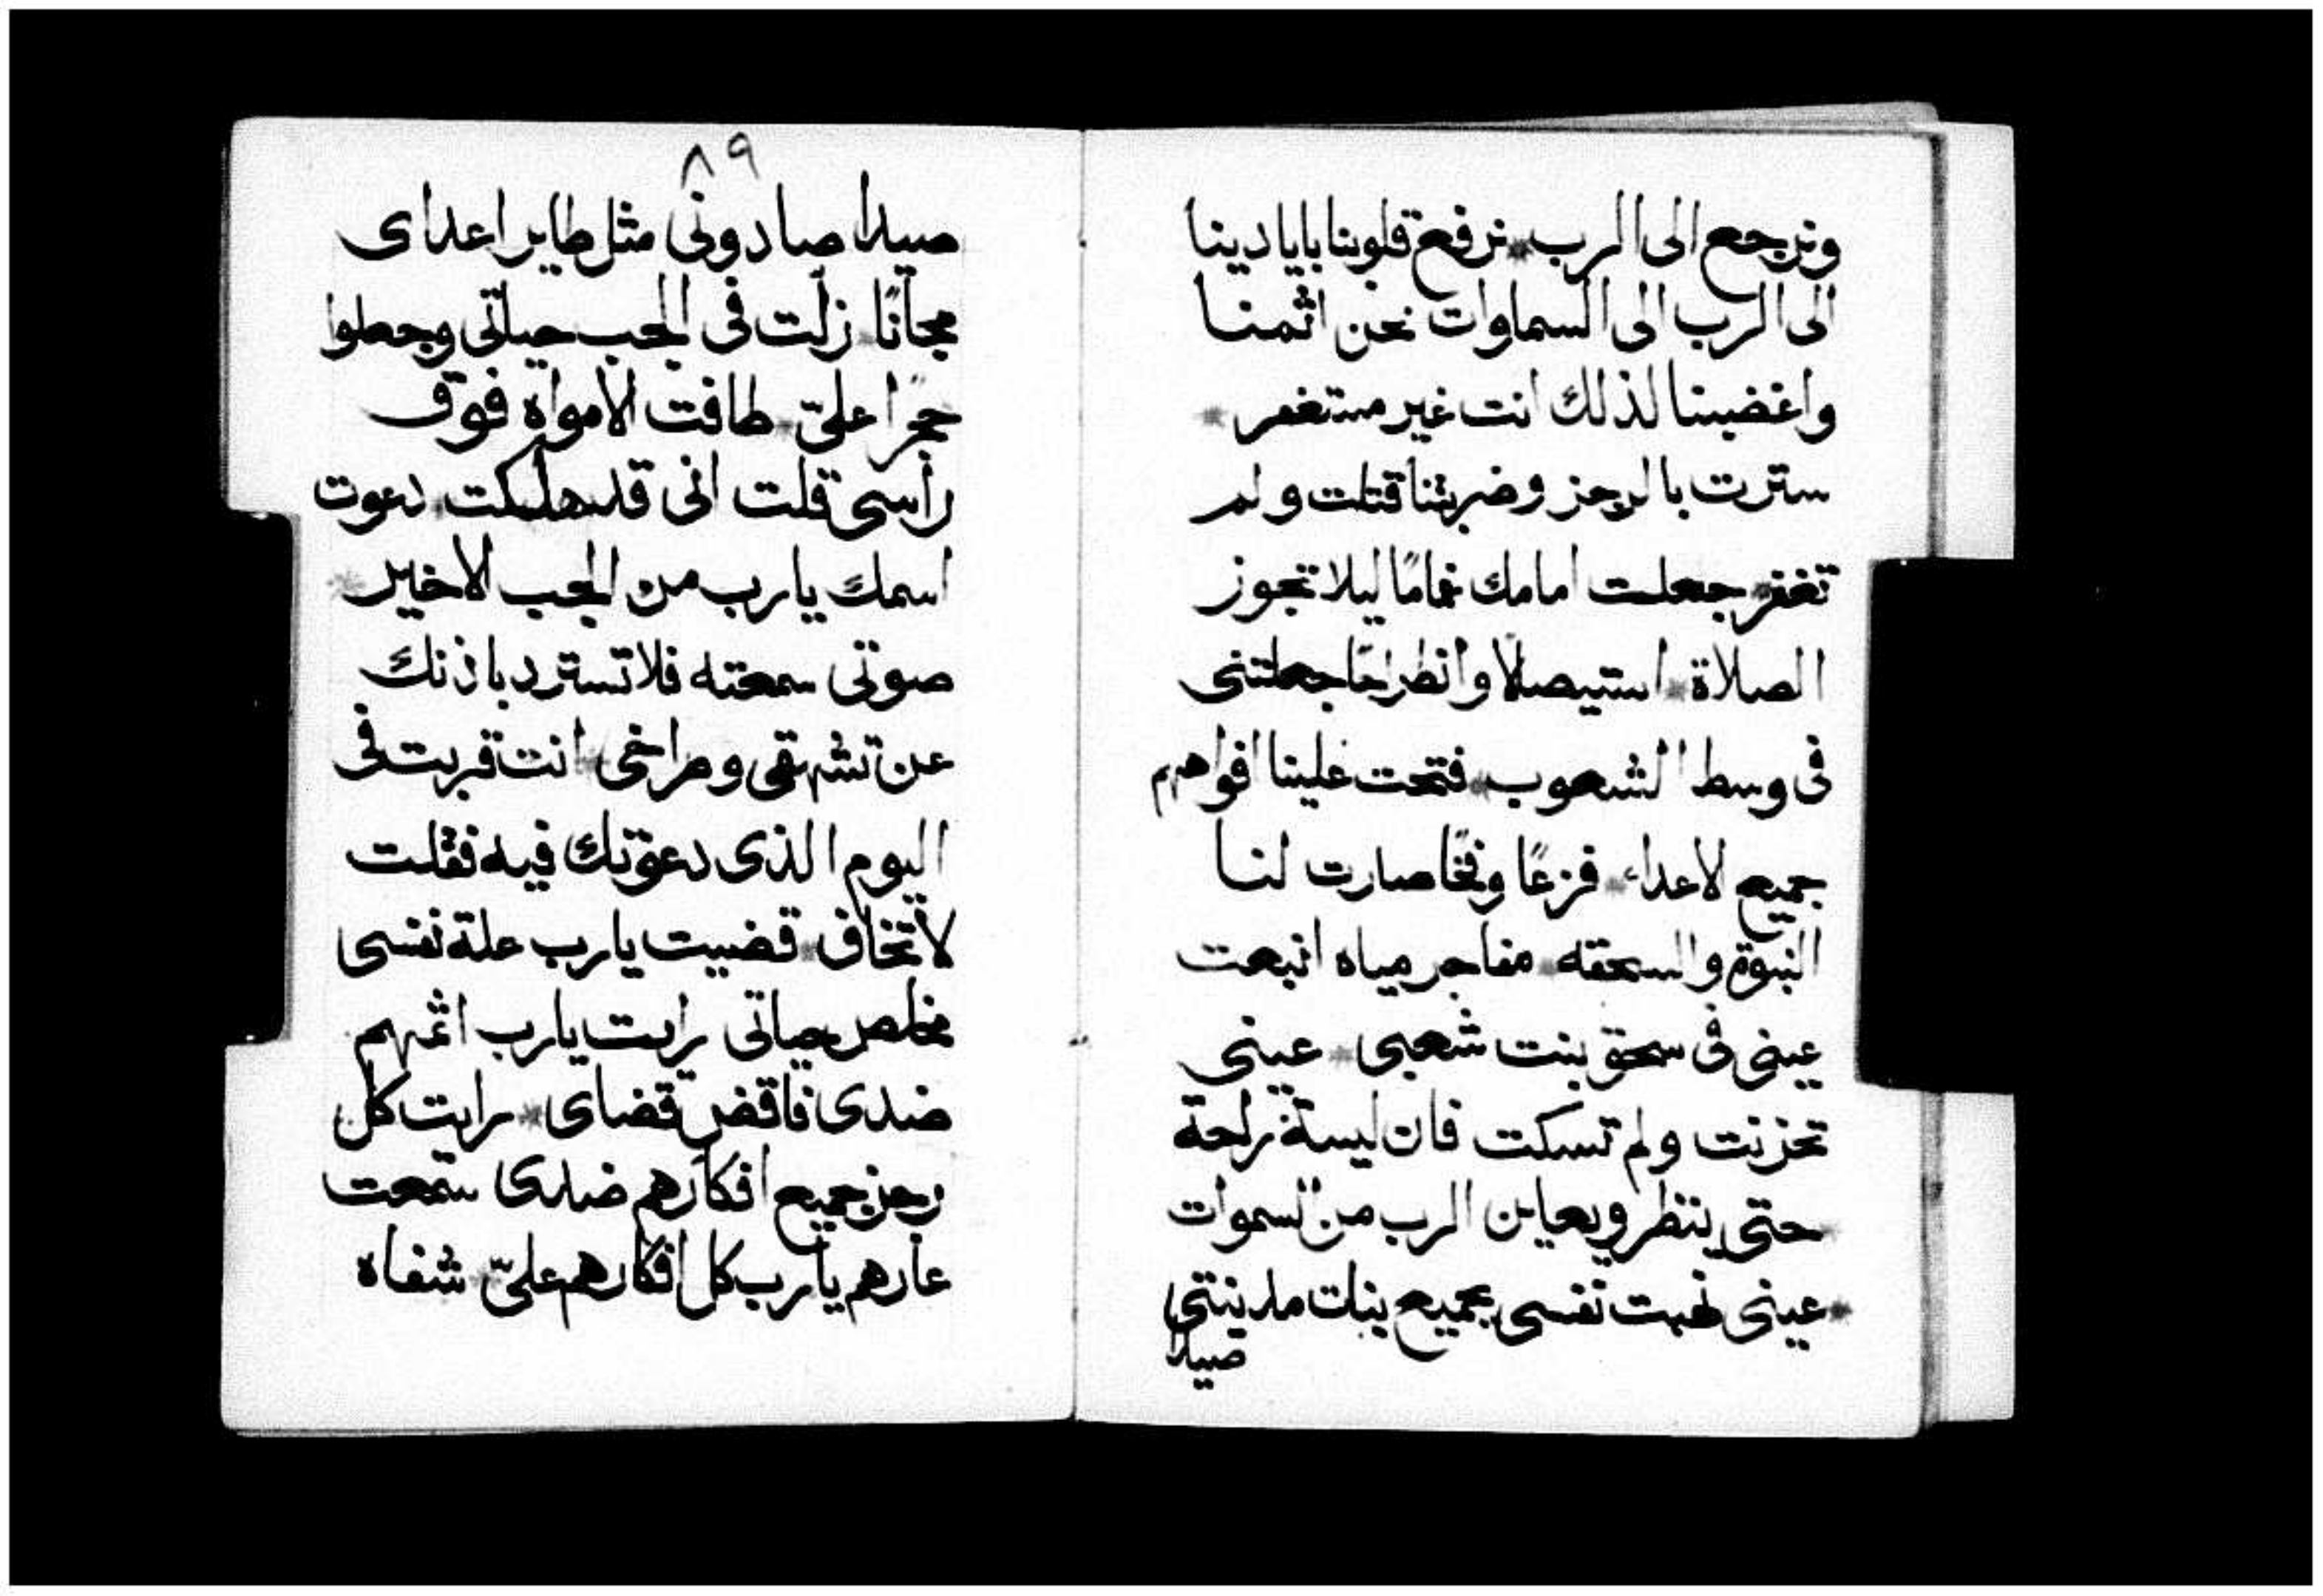 ونرجع الى الرب * نرفع قلوبنا بايادينا
الى الرب الى السماوات نحن اثمنا
واغضبنا لذلك انت غير مستغفر *
سترت بالرجز وضربتنا قتلت ولم
تغفر * جعلت امامك غمامًا ليلا تجوز
الصلاة * استيصالا وانطراحًا جعلتنى
فى وسط الشعوب * فتحت علينا افواههم
جميع الاعداء * فزعًا وفخًا صارت لنا
النبوة والسحقه * مفاجر مياه انبعت
عينى فى سحق بنت شعبى * عينى
تحزنت ولم تسكت فان ليسة راحة
حتى ينظر ويعاين الرب من السموات
* عينى نهبت نفسى بجميع بنات مدينتى
صيدا
٨٩
صيدا صادونى مثل طاير اعداى
مجانًا * زلت فى الجب حياتى وجعلوا
حجرًا علىّ * طافت الامواه فوق
رأسى قلت انى قد هلكت * دعوت
اسمك يارب من الجب الاخير *
صوتى سمعته فلا تسترد باذنك
عن تشهقى وصراخى * انت قربت فى
اليوم الذى دعوتك فيه فقلت
لا تخاف * قضيت يارب علة نفسى
مخلص حياتى رايت يارب اثمهم
ضدى فاقض قضاى * رايت كل
رجز جميع افكارهم ضدى سمعت
عارهم يارب كل افكارهم علىّ * شفاه